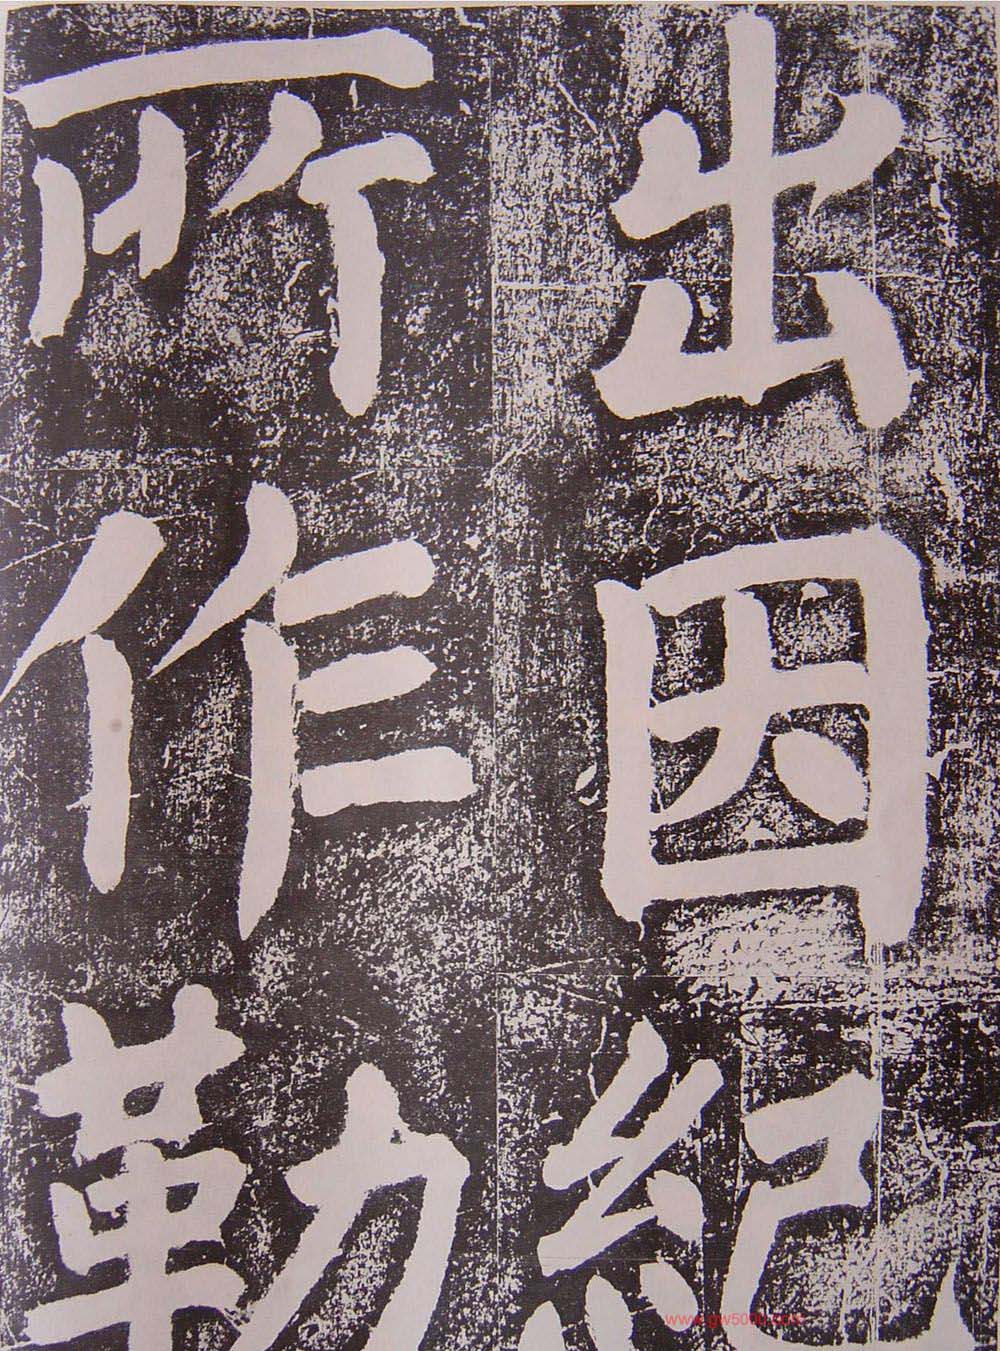 出因紀
所作勒
www.gw5000.com